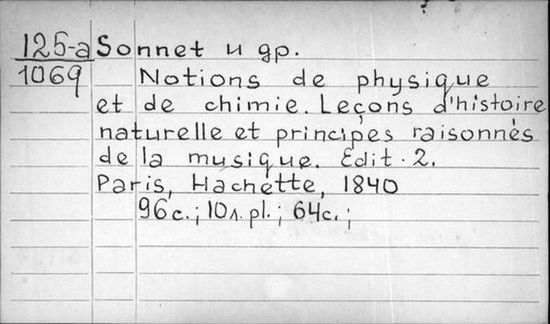 125-a Sonnet и др.
1069 Notions de physique
et de chimie. Leçons d'histoire
naturelle et principes raisonnés
de la musique. Edit. 2.
Paris, Hachette, 1840
96c.; 10л. pl.; 64c.;